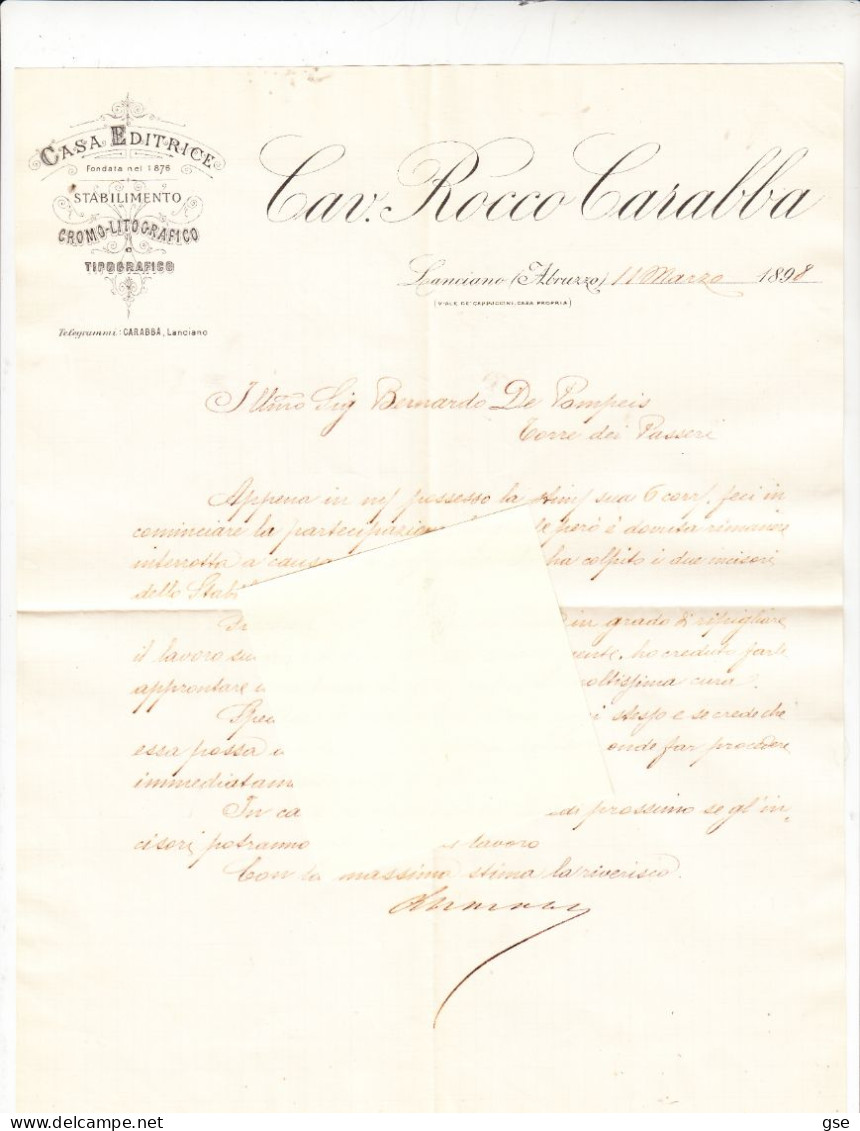 CASA EDITRICE
Fondata nel 1878
STABILIMENTO
CROMO-LITOGRAFICO
e
TIPOGRAFICO
Telegrammi: CARABBA, Lanciano
Cav. Rocco Carabba
Lanciano (Abruzzo) 11 Marzo 1898
(VIALE DE' CAPPUCCINI, CASA PROPRIA)
Illmo Sig Bernardo De Pompeis
Torre dei Passeri
Appena in possesso la sua 6 corr. feci in
cominciare la partecipazion però è dovuta rimanere
interrotta a causa ha colpito i due incisori
dello Stab
in grado di ripigliare
il lavoro ho creduto farle
approntare moltissima cura.
Spe stesso e se crede che
essa possa onde far procedere
immediatam
In ca di prossimo se gl'in,
cisori potranno lavoro
Con la massima stima la riverisco.
gse